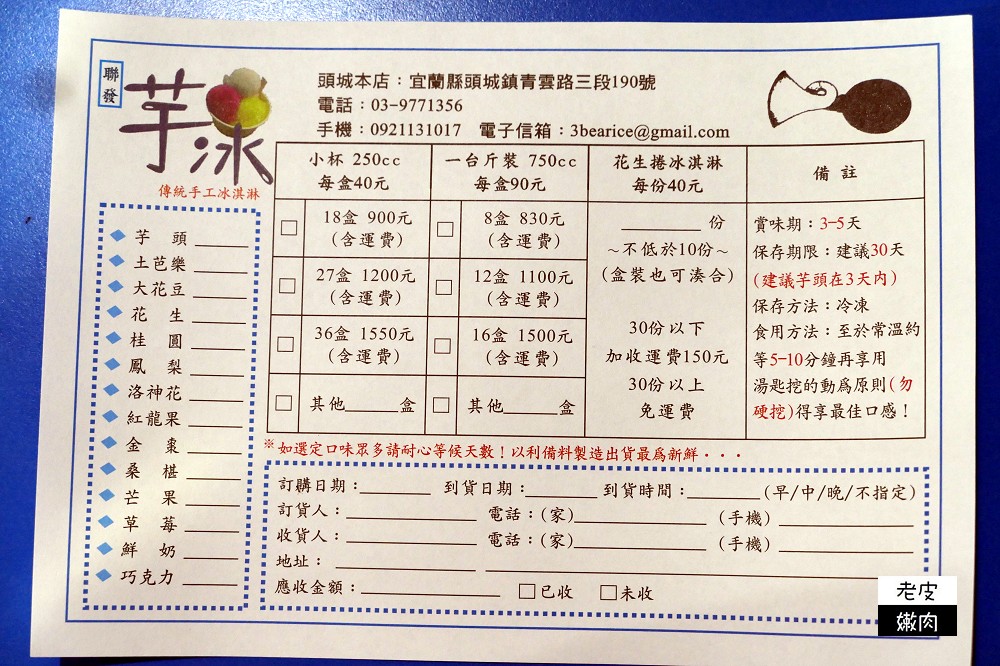 聯發
芋冰
傳統手工冰淇淋
頭城本店：宜蘭縣頭城鎮青雲路三段190號
電話：03-9771356
手機：0921131017 電子信箱：3bearice@gmail.com
小杯 250cc
每盒40元
一台斤裝 750cc
每盒90元
花生捲冰淇淋
每份40元
備註
18盒 900元
(含運費)
8盒 830元
(含運費)
27盒 1200元
(含運費)
12盒 1100元
(含運費)
36盒 1550元
(含運費)
16盒 1500元
(含運費)
其他_____盒
其他_____盒
_______份
～不低於10份～
(盒裝也可湊合)
30份以下
加收運費150元
30份以上
免運費
賞味期：3-5天
保存期限：建議30天
(建議芋頭在3天內)
保存方法：冷凍
食用方法：至於常溫約
等5-10分鐘再享用
湯匙挖的動爲原則(勿
硬挖)得享最佳口感！
芋頭_____
土芭樂_____
大花豆_____
花生_____
桂圓_____
鳳梨_____
洛神花_____
紅龍果_____
金棗_____
桑椹_____
芒果_____
草莓_____
鮮奶_____
巧克力_____
※如選定口味眾多請耐心等候天數！以利備料製造出貨最爲新鮮・・・
訂購日期：_______ 到貨日期：_______ 到貨時間：_______(早/中/晚/不指定)
訂貨人：_______ 電話：(家)_______ (手機)_______
收貨人：_______ 電話：(家)_______ (手機)_______
地址：_______
應收金額：_______ □已收 □未收
老皮
嫩肉